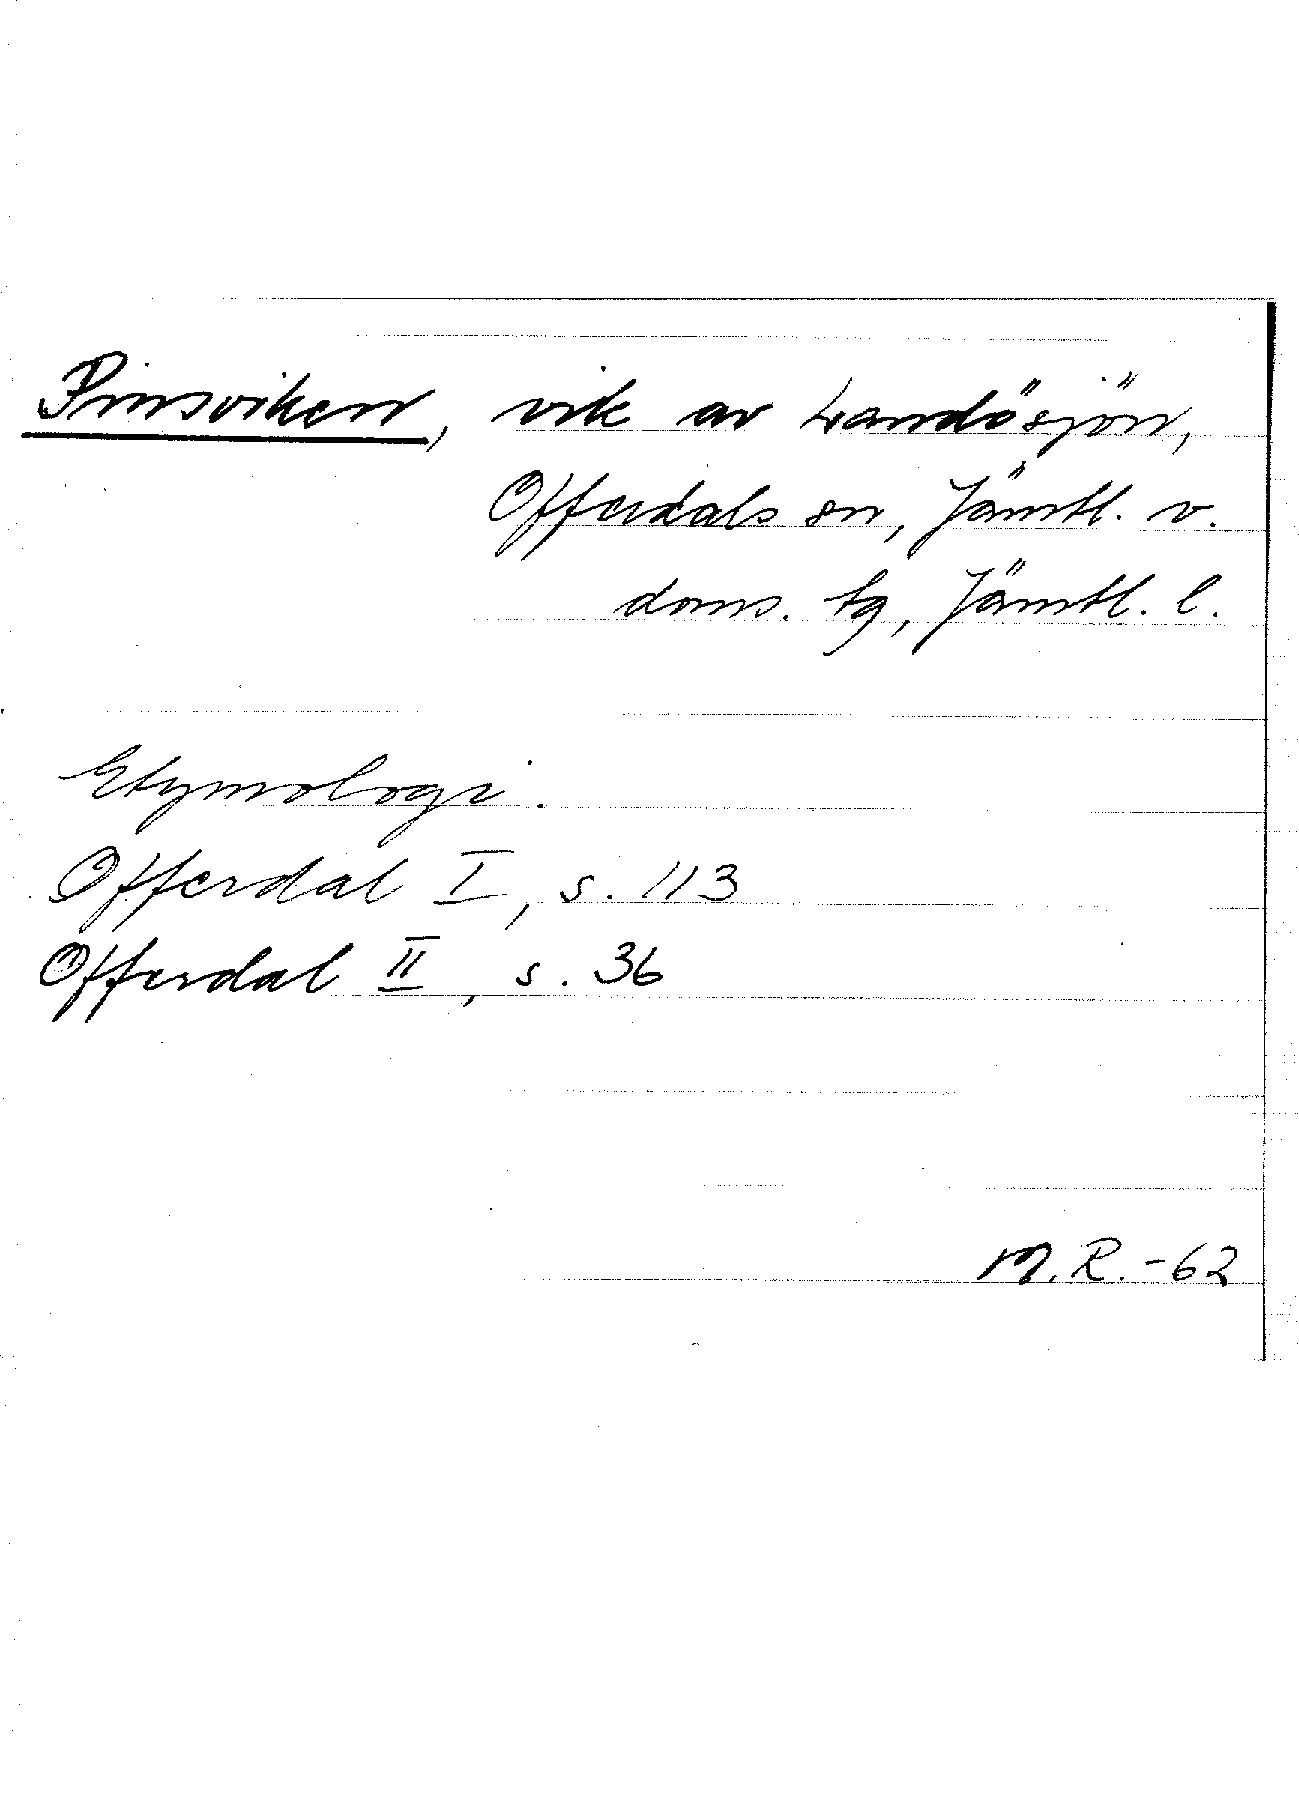 Pinsviken, vik av Landösjön,
Offerdals sn, Jämtl. v.
doms. tg, Jämtl. l.
Etymologi.
Offerdal I, s. 113
Offerdal II, s. 36
M.R.-62